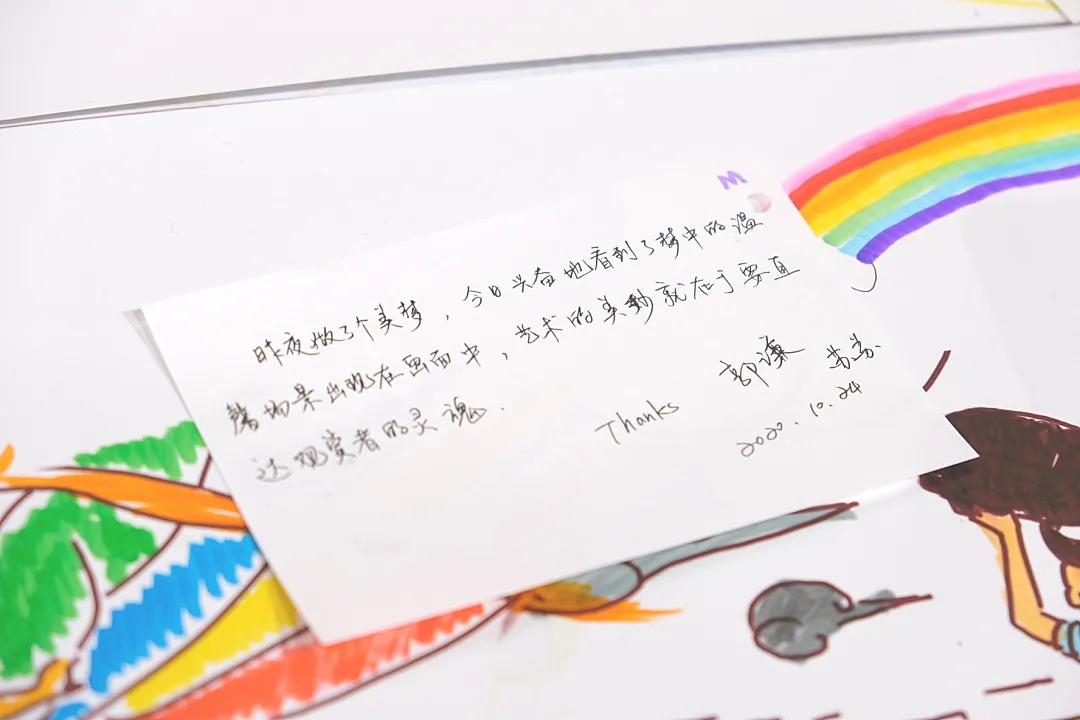 M
昨夜做了个美梦，今日兴奋地看到了梦中的温
馨场景出现在画面中，艺术的美妙就在于要直
达观赏者的灵魂.
Thanks
2020.10.24